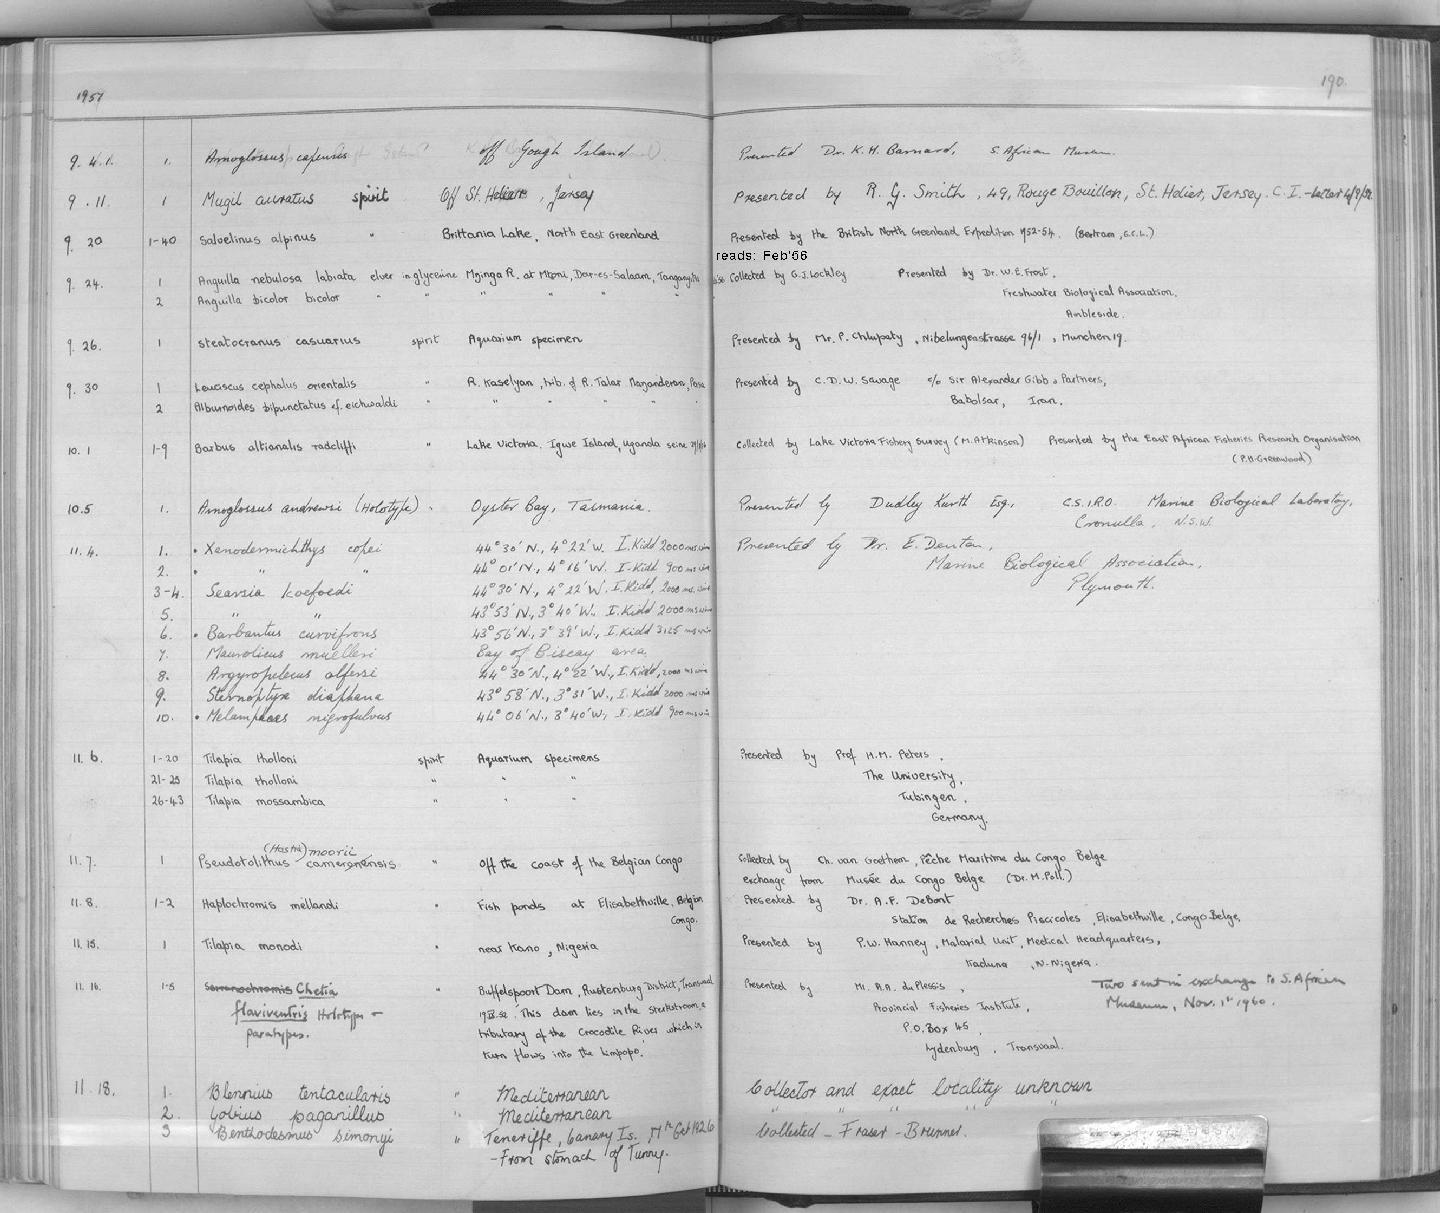 1957
190.
9. 4. 1. 1. Arnoglossus capensis off Gough Island Presented Dr. K. H. Barnard, S. African Museum.
9. 11. 1 Mugil auratus spirit Off St. Helier, Jersey Presented by R. G. Smith, 49, Rouge Bouillon, St. Helier, Jersey. C. I. - Letter
9. 20 1-40 Salvelinus alpinus " Brittania Lake, North East Greenland Presented by the British North Greenland Expedition 1952-54. (Bertram, G.C.L.)
reads: Feb'56
9. 24. 1 Anguilla nebulosa labiata elver in glycerine Mzinga R. at Mtoni, Dar-es-Salaam, Tanganyika Collected by G. J. Lockley Presented by Dr. W. E. Frost,
2 Anguilla bicolor bicolor " " " " " " Freshwater Biological Association,
Ambleside.
9. 26. 1 Steatocranus casuarius spirit Aquarium specimen Presented by Mr. P. Chlupaty, Nibelungenstrasse 96/1, Munchen 19.
9. 30 1 Leuciscus cephalus orientalis " R. Kaselyan, trib. of R. Talar Mazanderan, Presented by C. D. W. Savage c/o Sir Alexander Gibb & Partners,
2 Alburnoides bipunctatus cf. eichwaldi " " " " " " Babolsar, Iran.
10. 1 1-9 Barbus altianalis radcliffi " Lake Victoria, Igwe Island, Uganda seine Collected by Lake Victoria Fishery Survey (M. Atkinson) Presented by the East African Fisheries Research Organisation
(P.H. Greenwood)
10. 5 1. Arnoglossus andrewsi (Holotype) " Oyster Bay, Tasmania. Presented by Dudley Kurth Esq., C.S.I.R.O. Marine Biological Laboratory,
Cronulla, N.S.W.
11. 4. 1. • Xenodermichthys copei 44° 30' N., 4° 22' W. I. Kidd 2000 ms. wire Presented by Dr. E. Denton,
2. • " " 44° 01' N., 4° 16' W. I. Kidd 900 ms wire Marine Biological Association,
3-4. Searsia koefoedi 44° 30' N., 4° 22' W. I. Kidd, 2000 ms. wire Plymouth.
5. " " 43° 53' N., 3° 40' W. I. Kidd 2000 ms wire
6. • Barbantus curvifrons 43° 56' N., 3° 39' W., I. Kidd 3125 ms wire
7. Maurolicus muelleri Bay of Biscay area.
8. Argyropelecus olfersi 44° 30' N., 4° 22' W., I. Kidd, 2000 ms wire
9. Sternoptyx diaphana 43° 58' N., 3° 31' W., I. Kidd 2000 ms wire
10. • Melamphaes nigrofulvus 44° 06' N., 3° 40' W., I. Kidd 900 ms wire
11. 6. 1-20 Tilapia tholloni spirit Aquarium specimens Presented by Prof H. M. Peters,
21-25 Tilapia tholloni " " " The University,
26-43 Tilapia mossambica " " " Tubingen,
Germany.
(Hostia) moorii
11. 7. 1 Pseudotolithus cameronensis " Off the coast of the Belgian Congo Collected by Ch. van Goethem, Pêche Maritime du Congo Belge
exchange from Musée du Congo Belge (Dr. M. Poll.)
11. 8. 1-2 Haplochromis mellandi " Fish ponds at Elisabethville, Belgian Congo. Presented by Dr. A. F. DeBont
Station de Recherches Piscicoles, Elisabethville, Congo Belge.
11. 15. 1 Tilapia monodi " near Kano, Nigeria Presented by P. W. Hanney, Malarial Unit, Medical Headquarters,
Kaduna, N. Nigeria.
11. 16. 1-5 Serranochromis Chetia " Buffelspoort Dam, Rustenburg District, Transvaal Presented by Mr. A. A. du Plessis, Two sent in exchange to S. African
flaviventris Holotype + This dam lies in the Sterkstroom, a Provincial Fisheries Institute, Museum, Nov. 1st 1960.
paratypes. tributary of the Crocodile River which in P.O. Box 45,
turn flows into the Limpopo. Lydenburg, Transvaal.
11. 18. 1. Blennius tentacularis " Mediterranean Collector and exact locality unknown
2. Gobius paganillus " Mediterranean " " " " "
3 Benthodesmus simonyi " Teneriffe, Canary Is. Oct 1926 Collected - Fraser - Brunner.
- From stomach of Tunny.